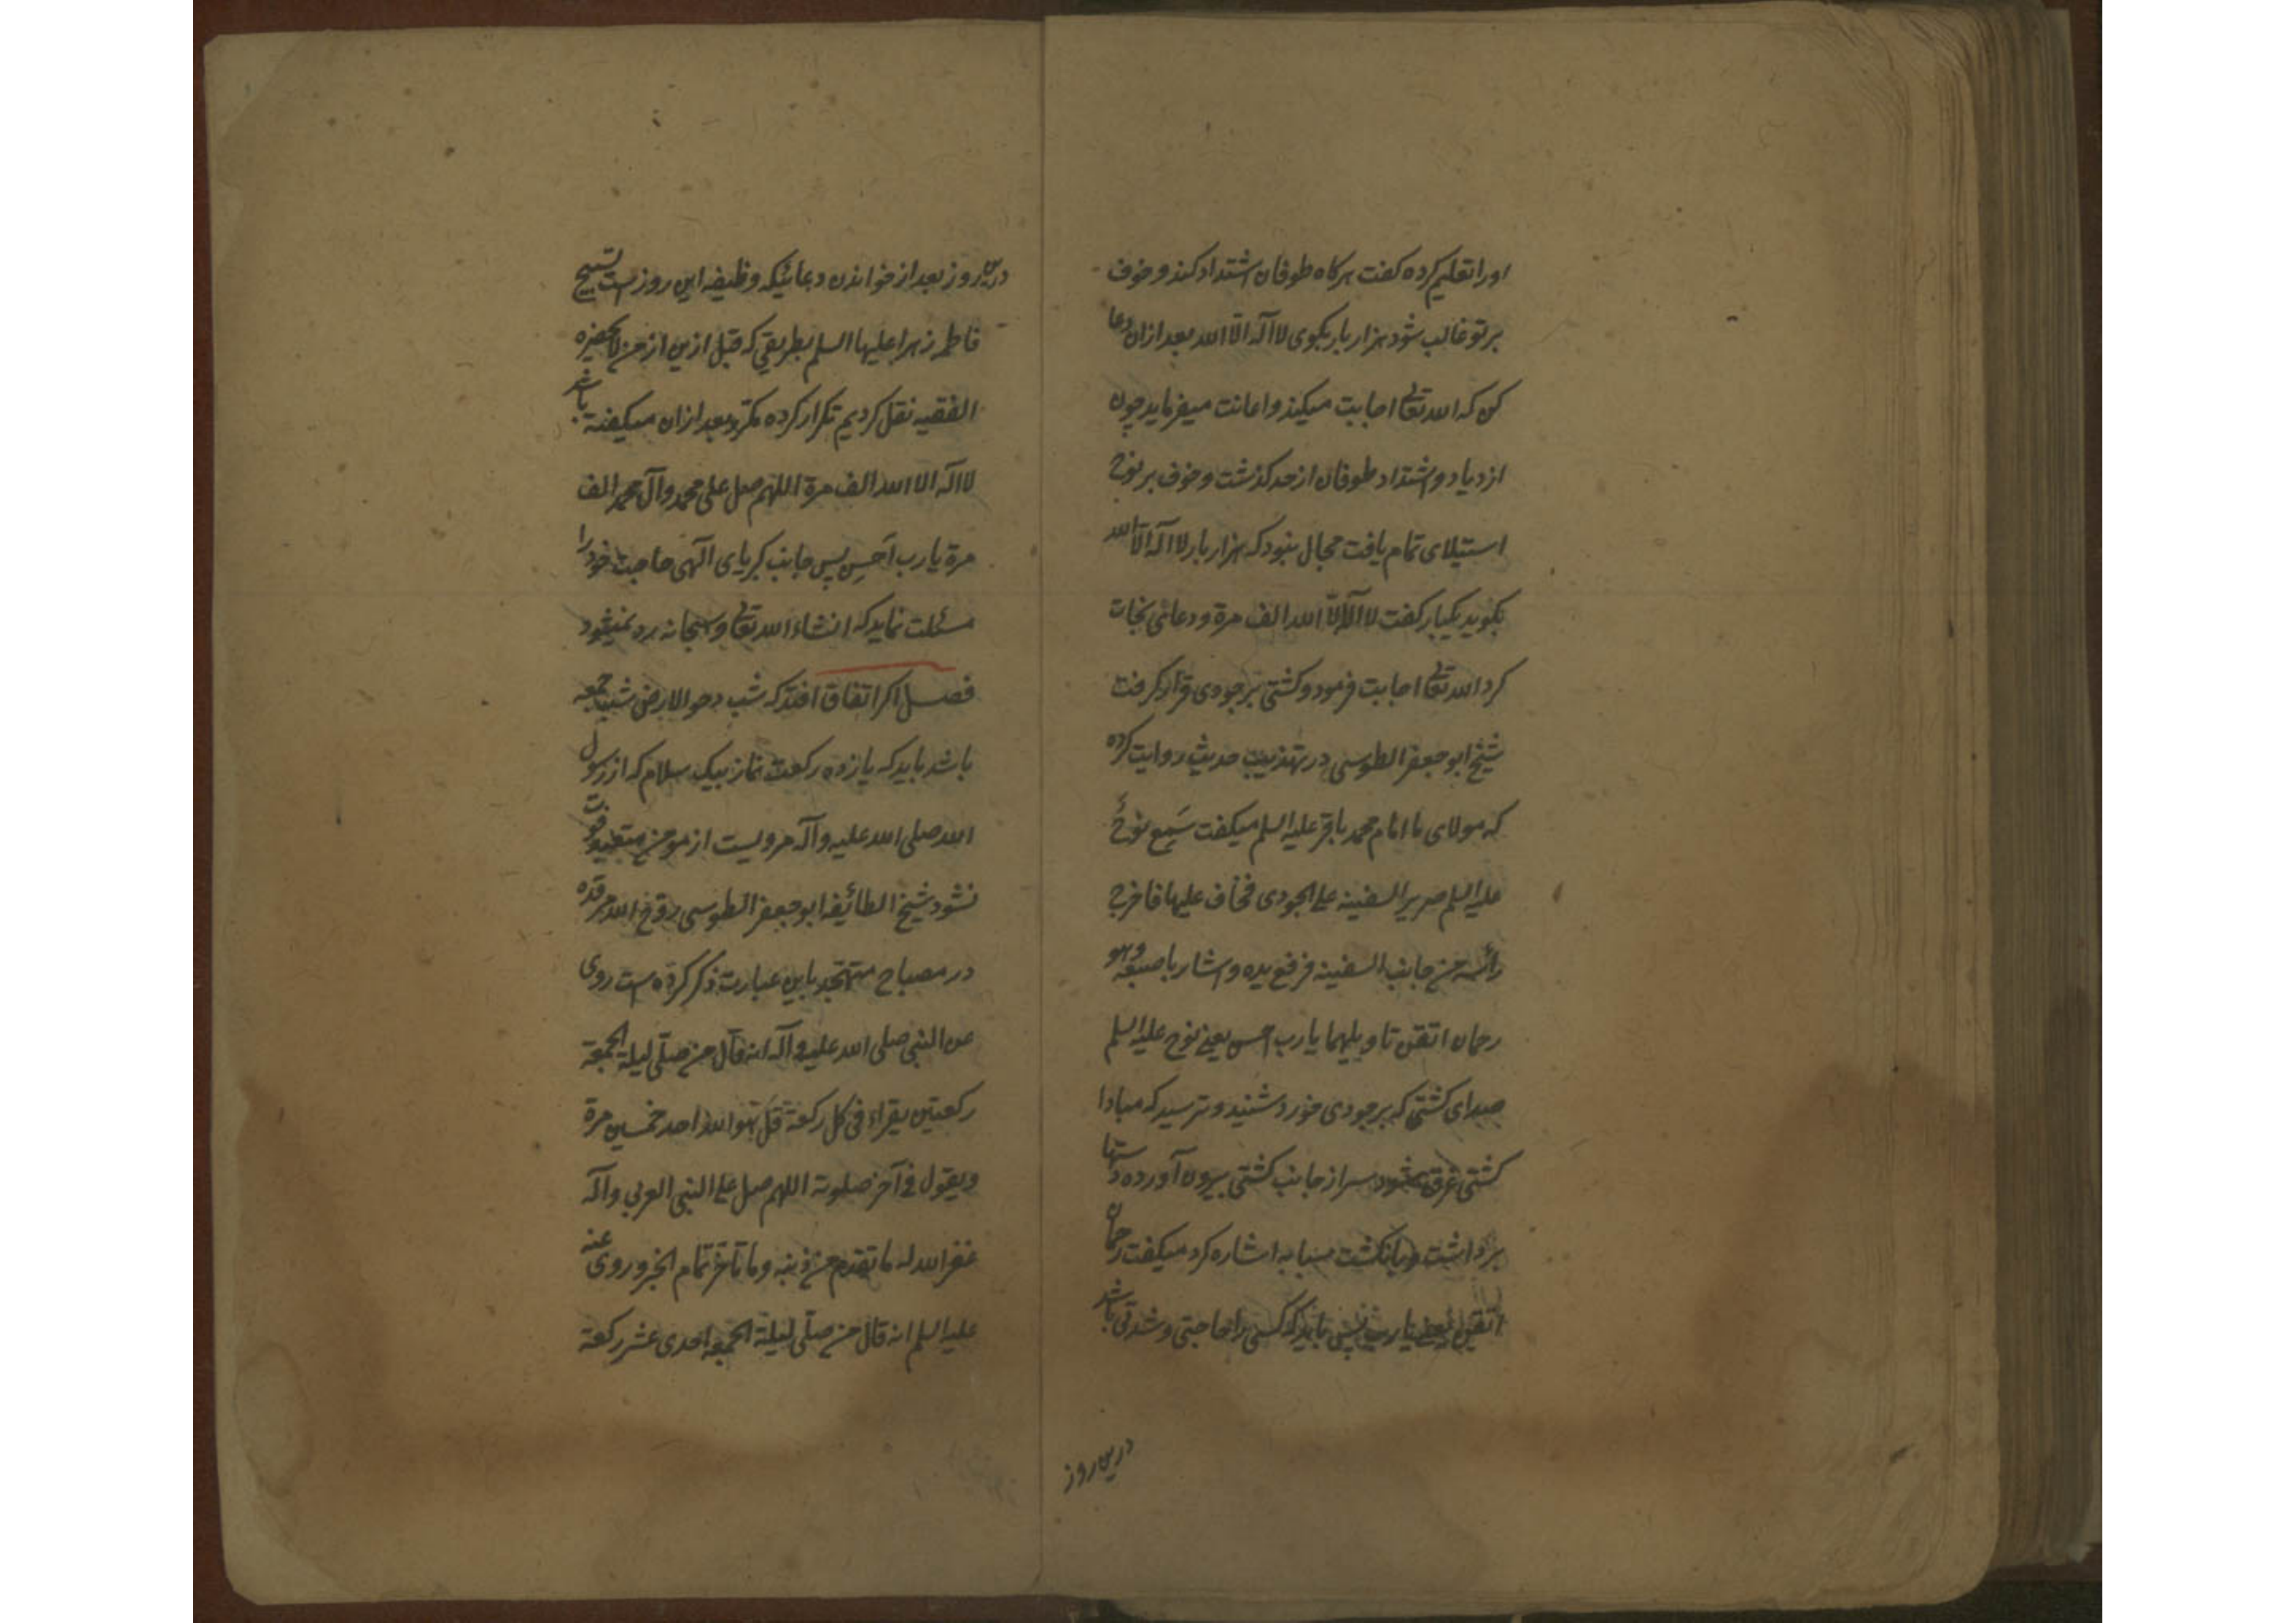 اورا تعلیم کرده کفت هرکاه طوفان اشتداد کند و خوف
بر تو غالب شود هزار بار بکوی لا اله الّا الله بعد ازان دعا
کن که الله تعالی اجابت میکند و اعانت میفرماید چون
ازدیاد و اشتداد طوفان از حد کذشت و خوف بر نوح
استیلای تمام یافت مجال نبود که هزار بار لا اله الّا الله
بکوید یکبار کفت لا اله الّا الله الف مرة و دعائی نجات
کرد الله تعالی اجابت فرمود و کشتی بر جودی قرار کرفت
شیخ ابو جعفر الطوسی در تهذیب حدیث روایت کرده
که مولای ما امام محمد باقر علیه السلم میکفت سَمِع نوحٌ
علیه السلم صریر السفینه علی الجودی فخاف علیها فاخرج
رأسه من جانب السفینه فرفع یده و اشار باصبعه وهو
رحمان اتقن تاویلهما یا رب احسن یعنی نوح علیه السلم
صدای کشتی که بر جودی خورد شنید و ترسید که مبادا
کشتی غرق شود سر از جانب کشتی بیرون آورده دستها
برداشت و بانکشت سبابه اشاره کرد میکفت رحمان
اتقن یعنی یا رب پس باید که کسی را حاجتی و شدتی باشد
درین روز
درین روز بعد از خواندن دعائیکه وظیفه این روز است تسبیح
فاطمه زهرا علیها السلم بطریقی که قبل ازین از من لا یحضره
الفقیه نقل کردیم تکرار کرده مکرر بعد ازان میکفته باشد
لا اله الا الله الف مرة اللهم صل علی محمد و آل محمد الف
مرة یا رب اَحسِن پس جانب کبریای الهی حاجت خود را
مسئلت نماید که انشاء الله تعالی و سبحانه رد نمیشود
فصل اکر اتفاق افتد که شب دحو الارض شب جمعه
باشد باید که یازده رکعت نماز بیک سلام که از رسول
الله صلی الله علیه و آله مرویست از مومن متعبد فوت
نشود شیخ الطائفه ابو جعفر الطوسی روّح الله مرقده
در مصباح متهجد باین عبارت ذکر کرده است روی
عن النبی صلی الله علیه و آله انه قال من صلّی لیلة الجمعة
رکعتین یقراء فی کل رکعة قل هو الله احد خمسین مرة
و یقول فی آخر صلوته اللهم صل علی النبی العربی و آله
غفر الله له ما تقدم من ذنبه و ما تاخر تمام الخبر و روی عنه
علیه السلم انه قال من صلّی لیلة الجمعه احدی عشر رکعة